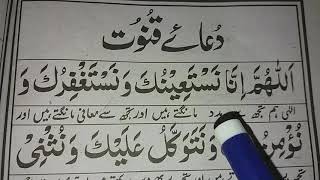 دُعائے قنُوت
اَللّٰهُمَّ اِنَّا نَسْتَعِيْنُكَ وَنَسْتَغْفِرُكَ وَ
الٰہی ہم تجھ سے مدد مانگتے ہیں اور تجھ سے معافی مانگتے ہیں اور
نُؤْمِنُ وَنَتَوَكَّلُ عَلَيْكَ وَنُثْنِیْ